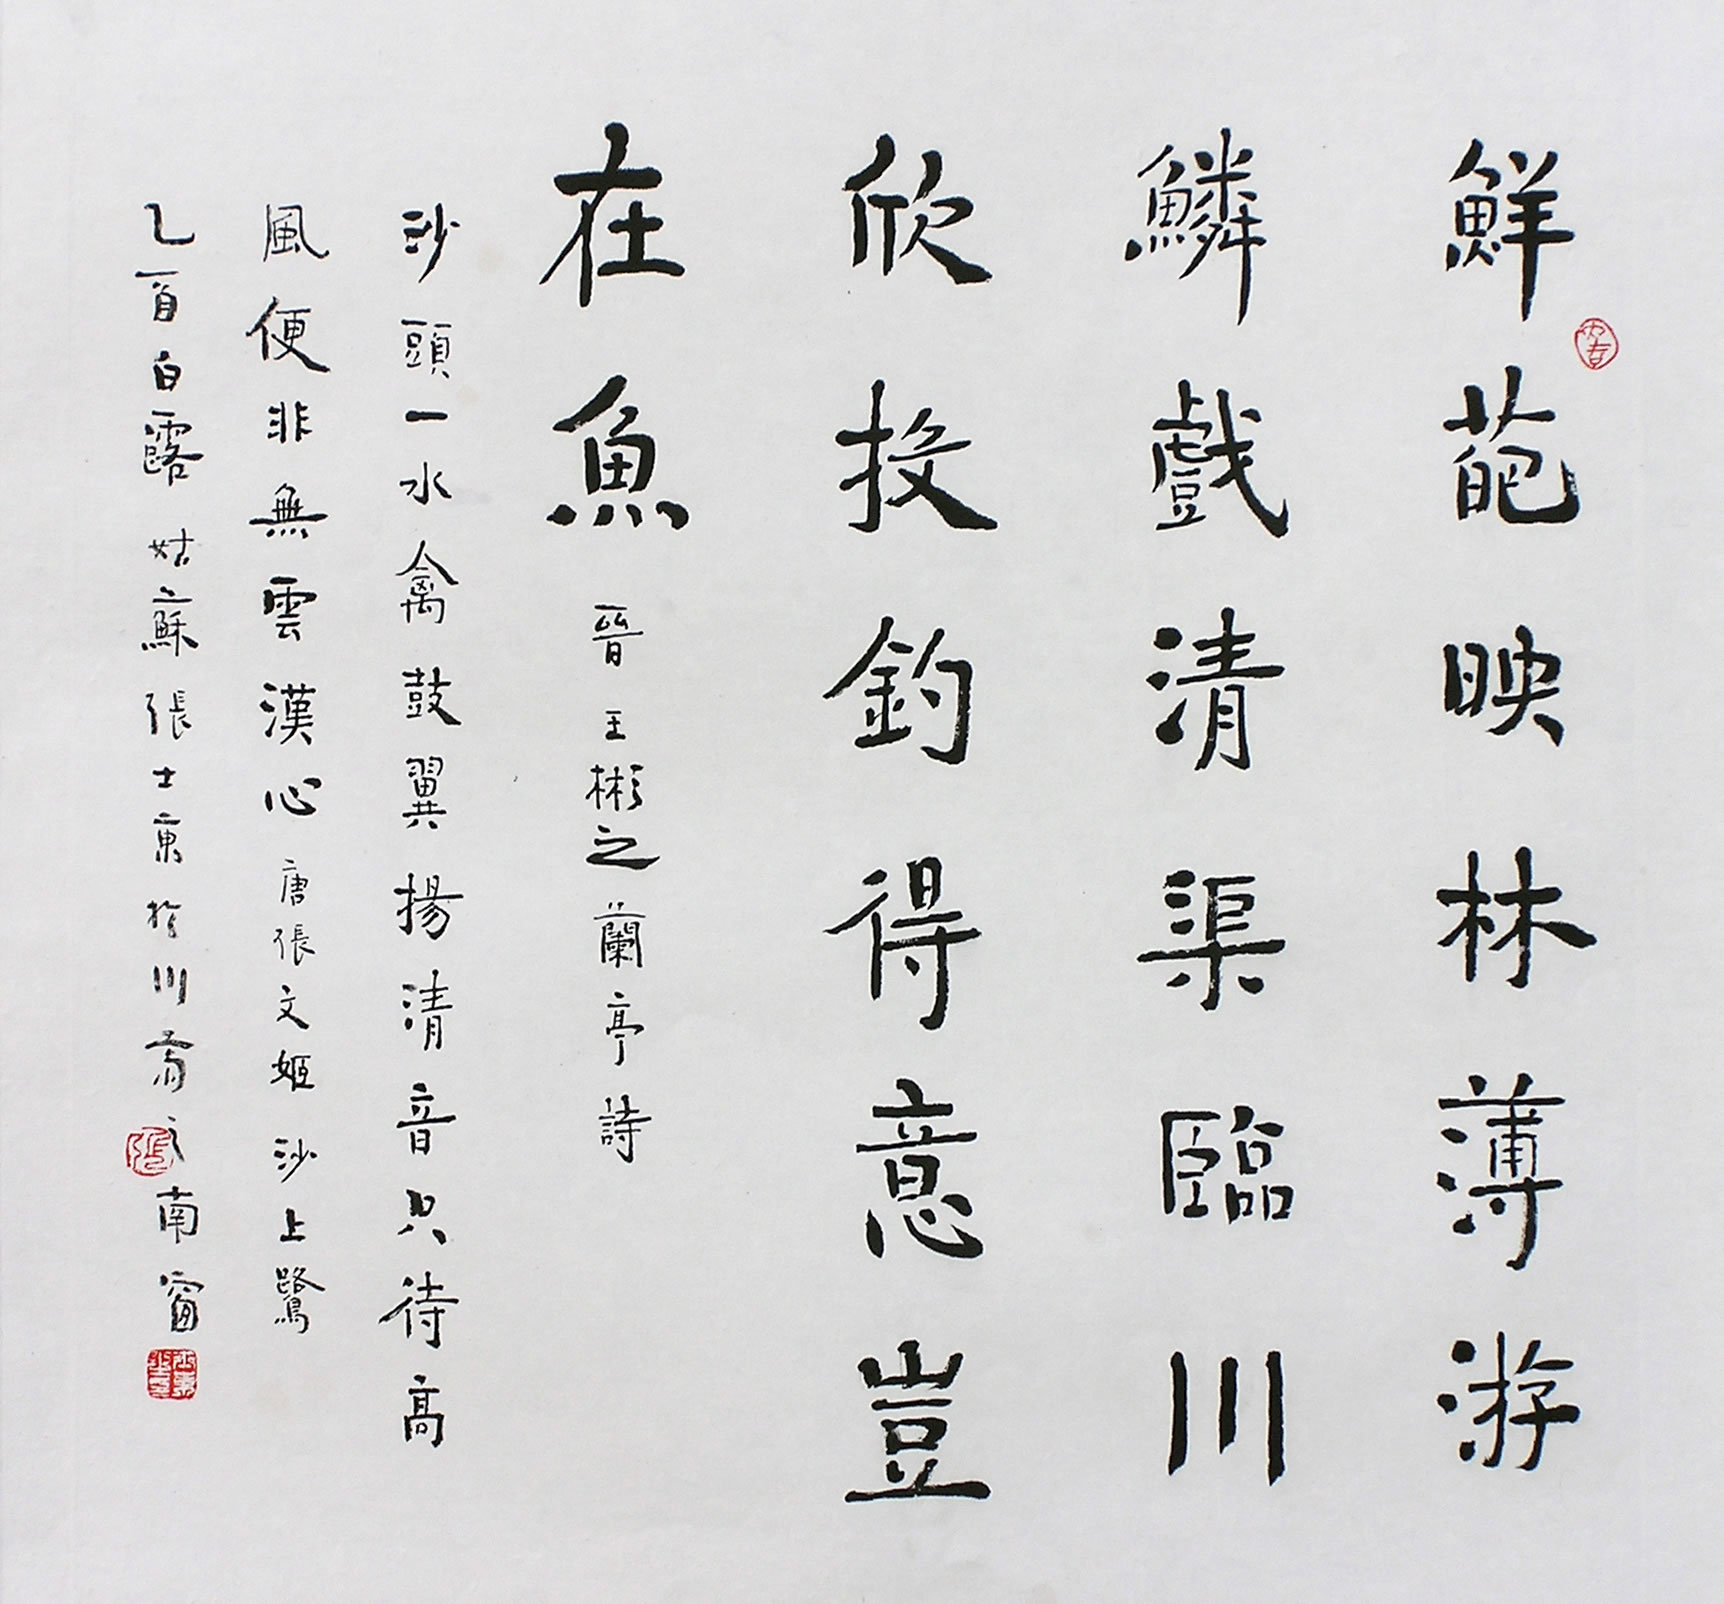 鮮葩映林薄游
鱗戲清渠臨川
欣投釣得意豈
在魚 晉王彬之蘭亭詩
沙頭一水禽鼓翼揚清音只待高
風便非無雲漢心 唐張文姬 沙上鷺
乙酉白露 姑蘇張士東於川齋之南窗
張